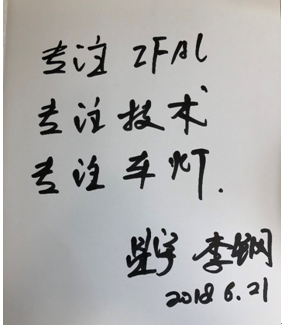 专注 IFAL
专注技术
专注车灯.
星宇 李钢
2018.6.21